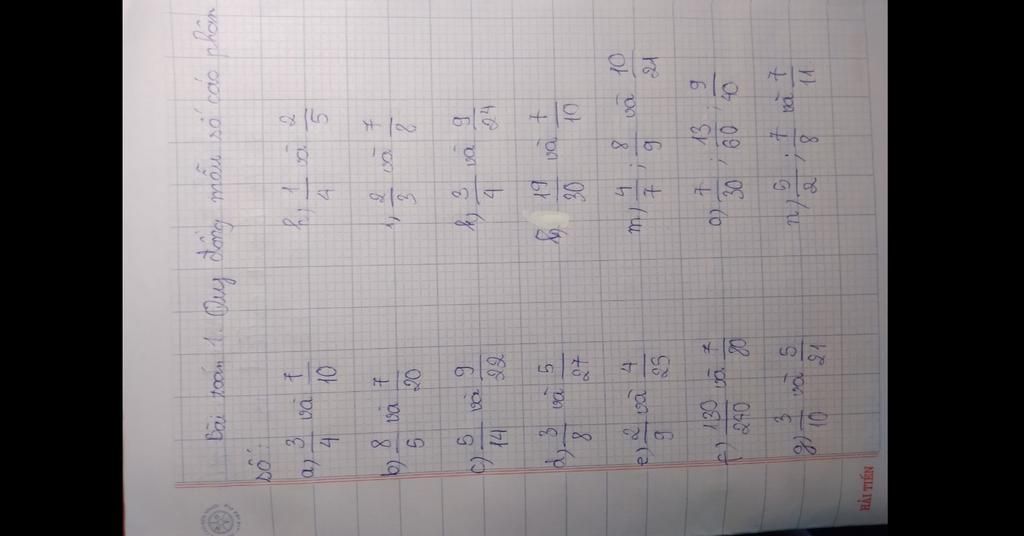 Bài toán 1. Quy đồng mẫu số các phân
số:
a) 3/4 và 7/10
b) 8/5 và 7/20
c) 5/14 và 9/22
d) 3/8 và 5/27
e) 2/9 và 4/25
f) 130/240 và 7/80
g) 3/10 và 5/21
h) 1/4 và 2/5
i) 2/3 và 7/8
k) 3/4 và 9/24
l) 19/30 và 7/10
m) 4/7 ; 8/9 và 10/21
o) 7/30 ; 13/60 ; 9/40
n) 5/2 ; 7/8 và 7/11
HẢI TIẾN